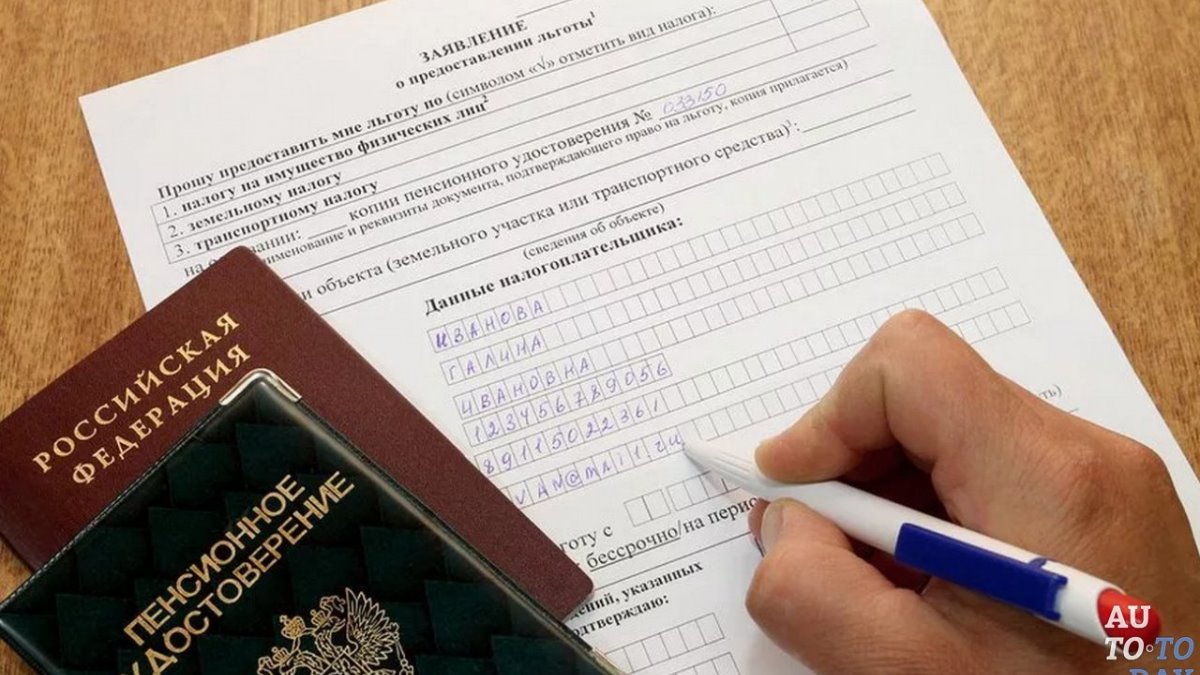 ЗАЯВЛЕНИЕ
о предоставлении льготы¹
Прошу предоставить мне льготу по (символом «√» отметить вид налога):
1. налогу на имущество физических лиц²
2. земельному налогу
3. транспортному налогу
на копии пенсионного удостоверения № 033150
реквизиты документа, подтверждающего право на льготу, копия прилагается)
и объекта (земельного участка или транспортного средства)³:
(сведения об объекте)
Данные налогоплательщика:
ИВАНОВА
ГАЛИНА
ИВАНОВНА
123456789056
89115022361
VAN@MAIL.RU
с
бессрочно/на перио
указанных
РОССИЙСКАЯ
ФЕДЕРАЦИЯ
ПЕНСИОННОЕ
УДОСТОВЕРЕНИЕ
AU
TO TO
DAY